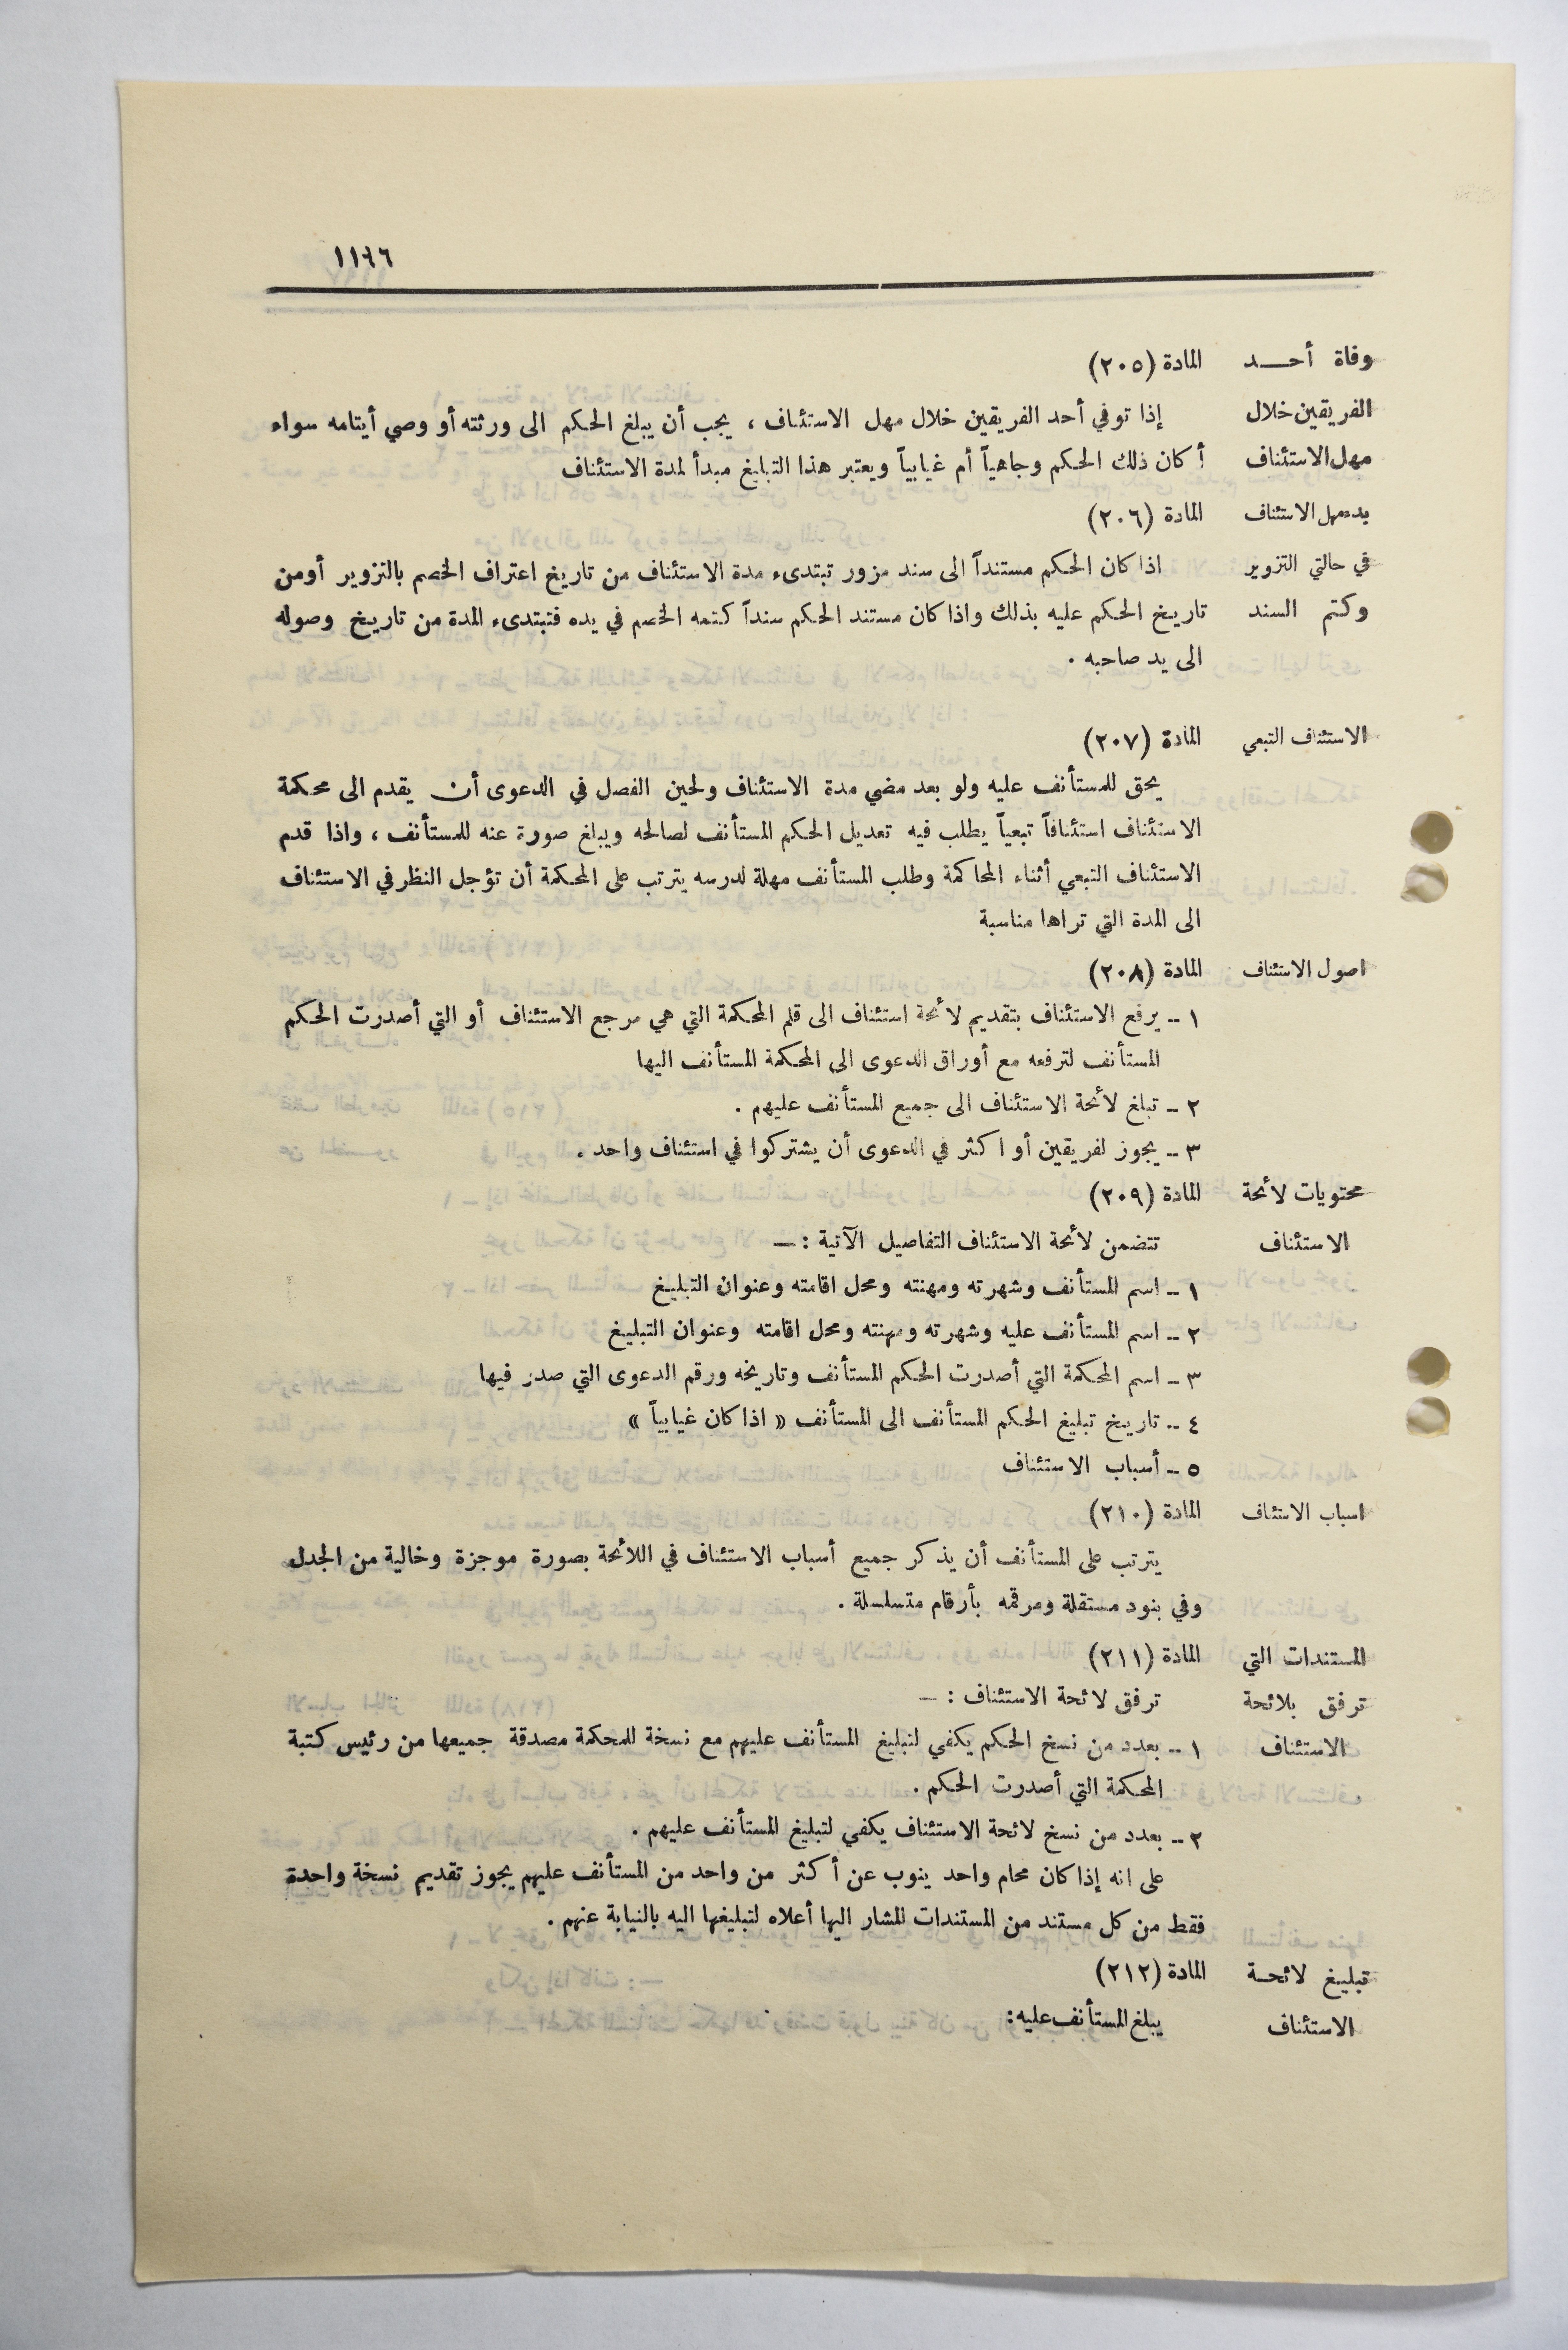 ١١٦٦
وفاة أحــد المادة (٢٠٥)
الفريقين خلال إذا توفي أحد الفريقين خلال مهل الاستئناف ، يجب أن يبلغ الحكم الى ورثته أو وصي أيتامه سواء
مهل الاستئناف أكان ذلك الحكم وجاهياً أم غيابياً ويعتبر هذا التبليغ مبدأ لمدة الاستئناف
بدء مهل الاستئناف المادة (٢٠٦)
في حالتي التزوير اذا كان الحكم مستنداً الى سند مزور تبتدىء مدة الاستئناف من تاريخ اعتراف الخصم بالتزوير أو من
وكتم السند تاريخ الحكم عليه بذلك واذا كان مستند الحكم سنداً كتمه الخصم في يده فتبتدىء المدة من تاريخ وصوله
الى يد صاحبه .
الاستئناف التبعي المادة (٢٠٧)
يحق للمستأنف عليه ولو بعد مضي مدة الاستئناف ولحين الفصل في الدعوى أن يقدم الى محكمة
الاستئناف استئنافاً تبعياً يطلب فيه تعديل الحكم المستأنف لصالحه ويبلغ صورة عنه للمستأنف ، واذا قدم
الاستئناف التبعي أثناء المحاكمة وطلب المستأنف مهلة لدرسه يترتب على المحكمة أن تؤجل النظر في الاستئناف
الى المدة التي تراها مناسبة
اصول الاستئناف المادة (٢٠٨)
١ – يرفع الاستئناف بتقديم لائحة استئناف الى قلم المحكمة التي هي مرجع الاستئناف أو التي أصدرت الحكم
المستأنف لترفعه مع أوراق الدعوى الى المحكمة المستأنف اليها
٢ – تبلغ لائحة الاستئناف الى جميع المستأنف عليهم .
٣ – يجوز لفريقين أو اكثر في الدعوى أن يشتركوا في استئناف واحد .
محتويات لائحة المادة (٢٠٩)
الاستئناف تتضمن لائحة الاستئناف التفاصيل الآتية : —
١ – اسم المستأنف وشهرته ومهنته ومحل اقامته وعنوان التبليغ
٢ – اسم المستأنف عليه وشهرته ومهنته ومحل اقامته وعنوان التبليغ
٣ – اسم المحكمة التي أصدرت الحكم المستأنف وتاريخه ورقم الدعوى التي صدر فيها
٤ – تاريخ تبليغ الحكم المستأنف الى المستأنف « اذا كان غيابياً »
٥ – أسباب الاستئناف
اسباب الاستئناف المادة (٢١٠)
يترتب على المستأنف أن يذكر جميع أسباب الاستئناف في اللائحة بصورة موجزة وخالية من الجدل
وفي بنود مستقلة ومرقمه بأرقام متسلسلة .
المستندات التي المادة (٢١١)
ترفق بلائحة ترفق لائحة الاستئناف : —
الاستئناف ١ – بعدد من نسخ الحكم يكفي لتبليغ المستأنف عليهم مع نسخة للمحكمة مصدقة جميعها من رئيس كتبة
المحكمة التي أصدرت الحكم .
٢ – بعدد من نسخ لائحة الاستئناف يكفي لتبليغ المستأنف عليهم .
على انه إذا كان محام واحد ينوب عن أكثر من واحد من المستأنف عليهم يجوز تقديم نسخة واحدة
فقط من كل مستند من المستندات المشار اليها أعلاه لتبليغها اليه بالنيابة عنهم .
تبليغ لائحة المادة (٢١٢)
الاستئناف يبلغ المستأنف عليه :